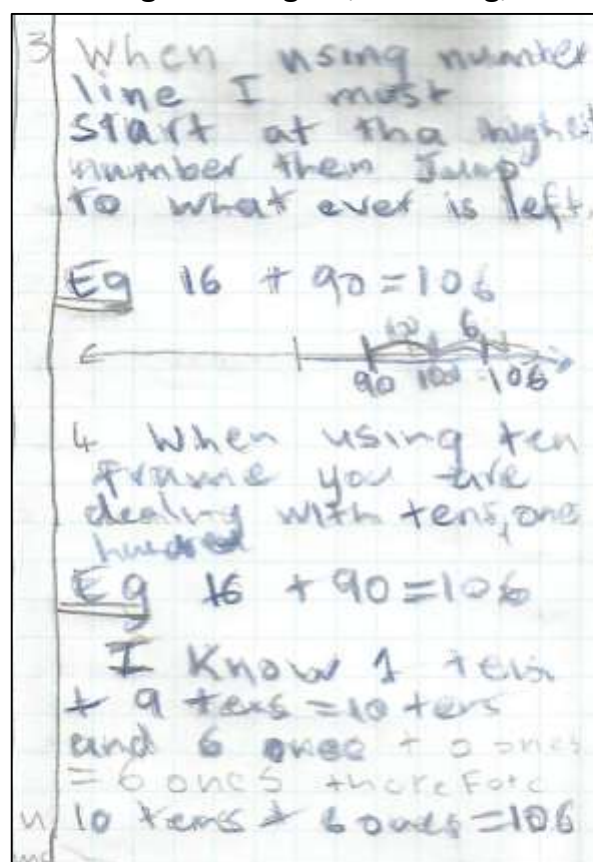 3 When using number
line I must
start at tha highest
number then Jump
to what ever is left.
Eg 16 + 90 = 106
10 6
90 100 106
4 When using ten
frame you are
dealing with tens, one
hundred
Eg 16 + 90 = 106
I Know 1 tens
+ 9 tens = 10 tens
and 6 ones + 0 ones
= 6 ones therefore
10 tens + 6 ones = 106